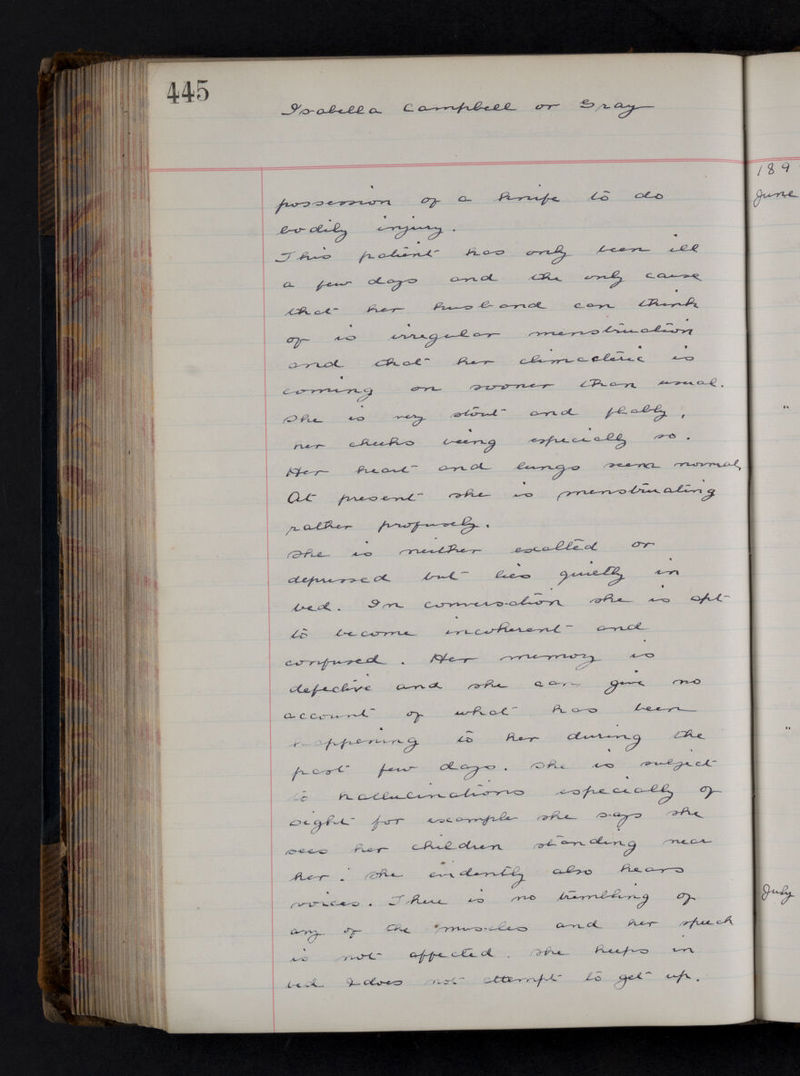 445
Isabella Campbell or Gray
possession of a knife to do
bodily injury.
This patient has only been ill
a few days and the only cause
that her husband can think
of is irregular menstruation
and that her climacteric is
coming on sooner than usual.
She is very stout and flabby,
her cheeks being especially so.
Her heart and lungs seem normal,
At present she is menstruating
rather profusely.
She is neither exalted or
depressed but lies quietly in
bed. In conversation she is apt
to become incoherent and
confused. Her memory is
defective and she can give no
account of what has been
happening to her during the
past few days. She is subject
to hallucinations especially of
sight for example she says she
sees her children standing near
her. She evidently also hears
voices. There is no trembling of
any of the muscles and her speech
is not affected. She keeps in
bed & does not attempt to get up.
189
June
"
"
July